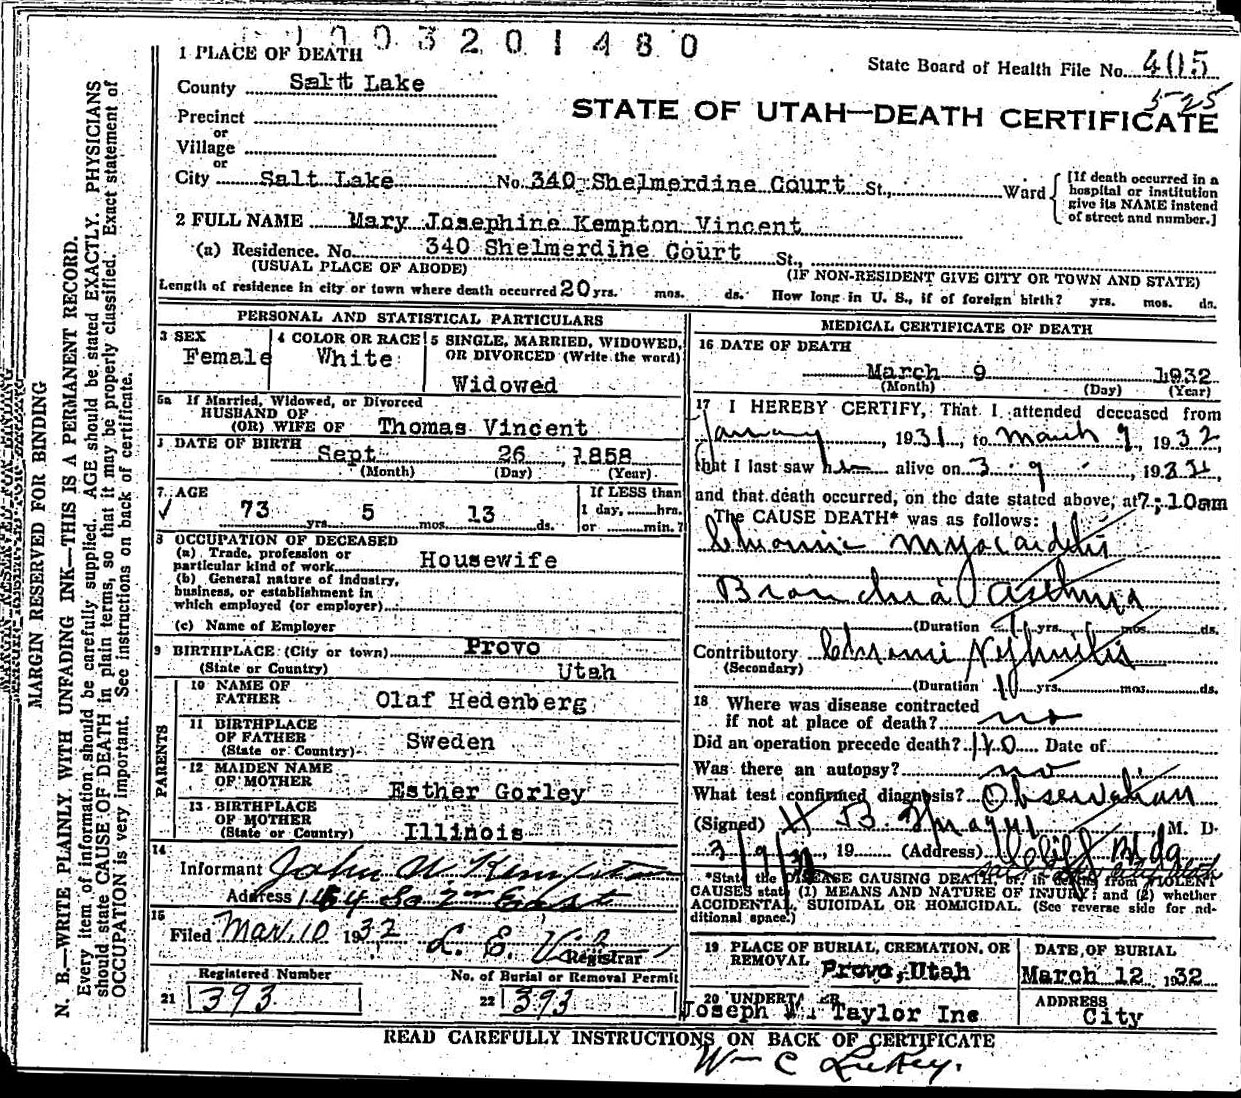 1003201480
1 PLACE OF DEATH
State Board of Health File No. 405
525
County Salt Lake
STATE OF UTAH—DEATH CERTIFICATE
Precinct
or
Village
or
City Salt Lake No. 340 Shelmerdine Court St., Ward
[If death occurred in a hospital or institution give its NAME instead of street and number.]
2 FULL NAME Mary Josephine Kempton Vincent
(a) Residence. No. 340 Shelmerdine Court St.,
(USUAL PLACE OF ABODE) (IF NON-RESIDENT GIVE CITY OR TOWN AND STATE)
Length of residence in city or town where death occurred 20 yrs. mos. ds. How long in U. S., if of foreign birth? yrs. mos. ds.
PERSONAL AND STATISTICAL PARTICULARS
3 SEX
Female
4 COLOR OR RACE
White
5 SINGLE, MARRIED, WIDOWED,
OR DIVORCED (Write the word)
Widowed
5a If Married, Widowed, or Divorced
HUSBAND OF
(OR) WIFE OF Thomas Vincent
DATE OF BIRTH
Sept 26, 1858
(Month) (Day) (Year)
7. AGE
✓ 73 yrs. 5 mos. 13 ds.
If LESS than
1 day, hrs.
or min.?
8 OCCUPATION OF DECEASED
(a) Trade, profession or
particular kind of work Housewife
(b) General nature of industry,
business, or establishment in
which employed (or employer)
(c) Name of Employer
9 BIRTHPLACE (City or town) Provo
(State or Country) Utah
PARENTS
10 NAME OF
FATHER Olaf Hedenberg
11 BIRTHPLACE
OF FATHER
(State or Country) Sweden
12 MAIDEN NAME
OF MOTHER Esther Gorley
13 BIRTHPLACE
OF MOTHER
(State or Country) Illinois
14
Informant John W Kempton
Address 164 So 2nd East
15
Filed Mar. 10 1932 L. E.
Registrar
Registered Number
21 393
No. of Burial or Removal Permit
22 393
MEDICAL CERTIFICATE OF DEATH
16 DATE OF DEATH
March 9 1932
(Month) (Day) (Year)
17 I HEREBY CERTIFY, That I attended deceased from
January, 1931, to March 9, 1932,
that I last saw her alive on 3-9, 1932,
and that death occurred, on the date stated above, at 7:10am
The CAUSE DEATH* was as follows:
Chronic Myocarditis
Bronchial Asthma
(Duration yrs. mos. ds.
Contributory Chronic Nephritis
(Secondary)
(Duration 10 yrs. mos. ds.
18 Where was disease contracted
if not at place of death? no
Did an operation precede death? No Date of
Was there an autopsy? no
What test confirmed diagnosis? Observation
(Signed) H B Sprague M. D.
3/9/32, 19 (Address) Bldg
*State the DISEASE CAUSING DEATH, or, in deaths from VIOLENT
CAUSES state (1) MEANS AND NATURE OF INJURY; and (2) whether
ACCIDENTAL, SUICIDAL OR HOMICIDAL. (See reverse side for ad-
ditional space.)
19 PLACE OF BURIAL, CREMATION, OR
REMOVAL Provo, Utah
DATE OF BURIAL
March 12 1932
20 UNDERTAKER
Joseph W. Taylor Inc
ADDRESS
City
READ CAREFULLY INSTRUCTIONS ON BACK OF CERTIFICATE
Wm C
MARGIN RESERVED FOR BINDING
N. B.—WRITE PLAINLY WITH UNFADING INK—THIS IS A PERMANENT RECORD.
Every item of information should be carefully supplied. AGE should be stated EXACTLY. PHYSICIANS
should state CAUSE OF DEATH in plain terms, so that it may be properly classified. Exact statement of
OCCUPATION is very important. See instructions on back of certificate.